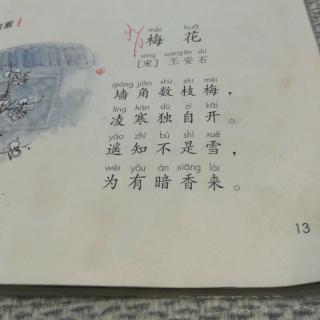 累
méi huā
梅花
sòng wáng ān shí
[宋] 王安石
qiáng jiǎo shù zhī méi
墙角数枝梅，
líng hán dú zì kāi
凌寒独自开。
yáo zhī bú shì xuě
遥知不是雪，
wèi yǒu àn xiāng lái
为有暗香来。
13